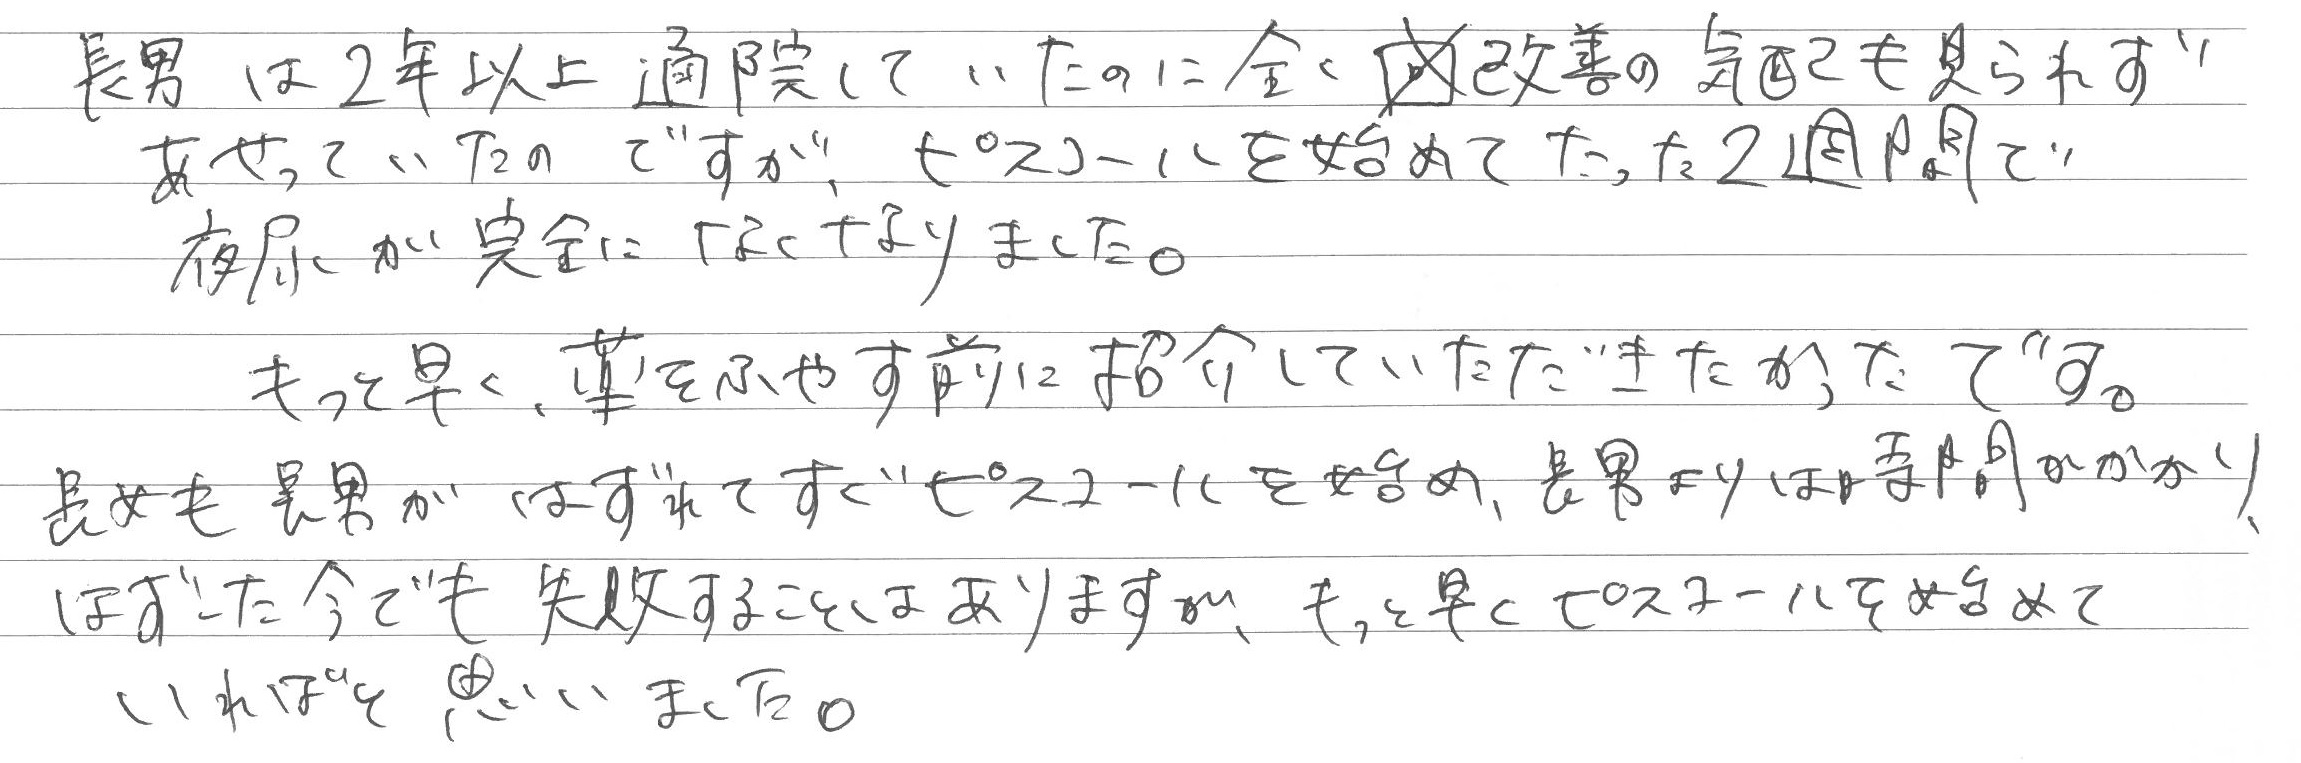 長男は2年以上通院していたのに全く改善の気配も見られず
あせっていたのですが、ピスコールを始めてたった2週間で
夜尿が完全になくなりました。
もっと早く、薬をふやす前に紹介していただきたかったです。
長女も長男がはずれてすぐピスコールを始め、長男よりは時間がかかり、
はずした今でも失敗することはありますが、もっと早くピスコールを始めて
いればと思いました。